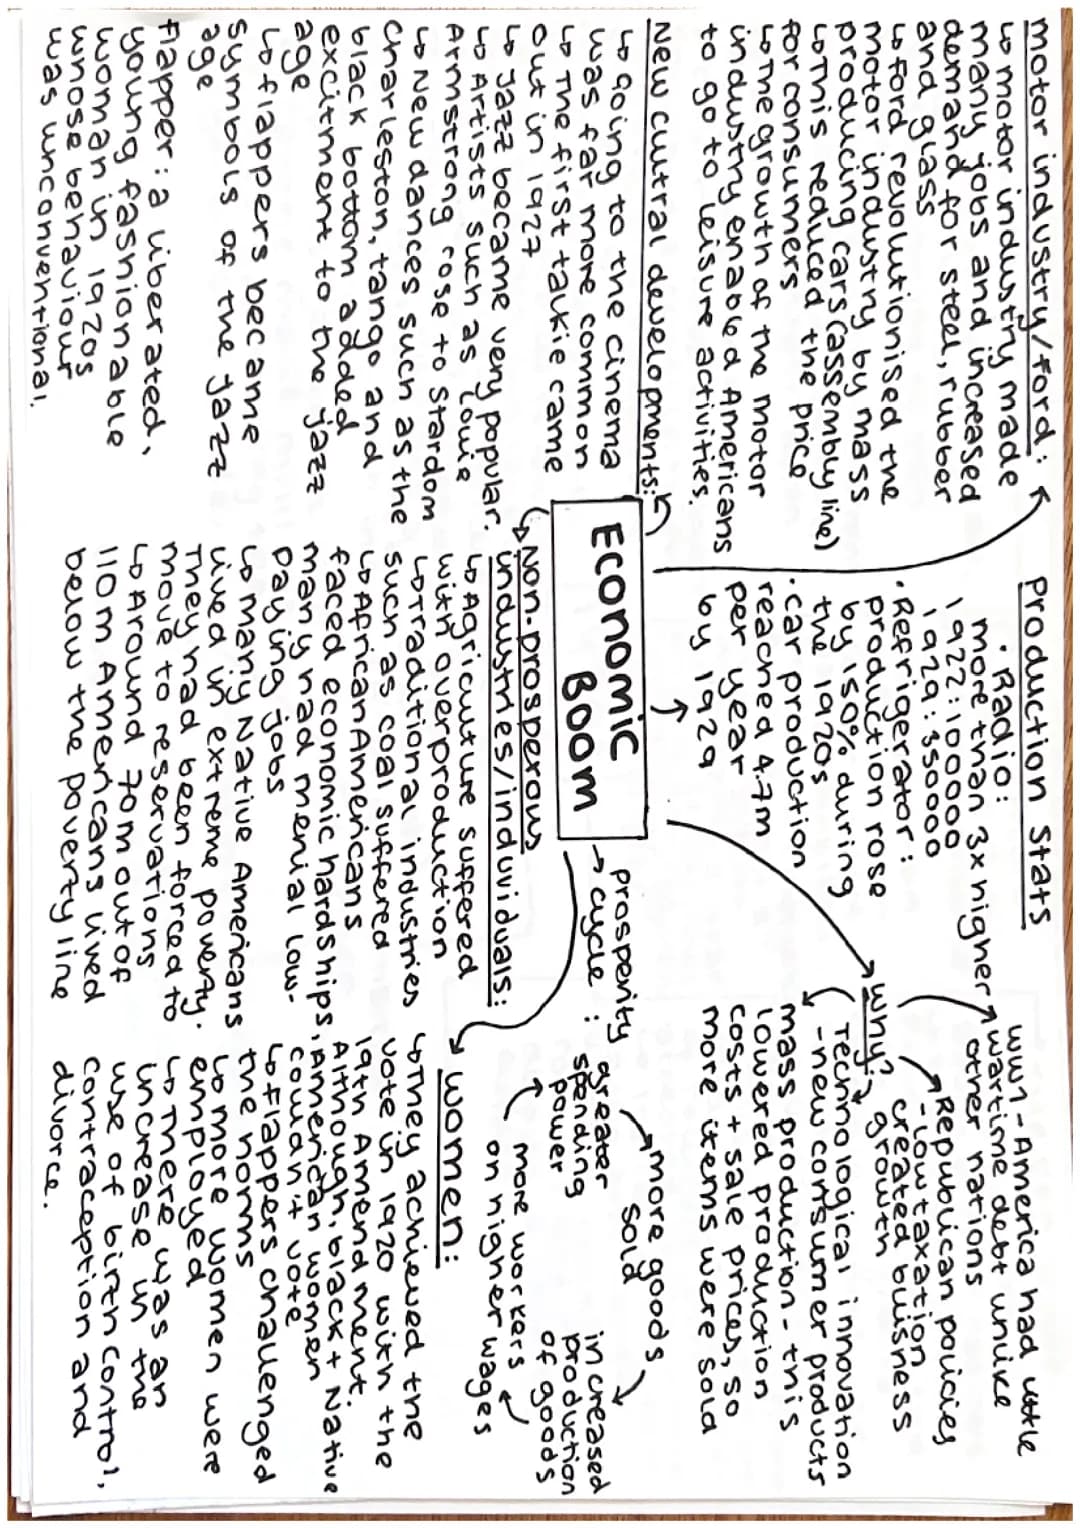 motor industry/ford:
↳ motor industry made
many jobs and increased
demand for steel, rubber
and glass
↳ ford revolutionised the
motor industry by mass
producing cars (assembly line)
↳ This reduced the price
for consumers
↳ The growth of the motor
industry enabled Americans
to go to leisure activities.
New cultral developments:
↳ going to the cinema
was far more common
↳ The first talkie came
out in 1927
↳ Jazz became very popular.
↳ Artists such as Louie
Armstrong rose to stardom
↳ New dances such as the
charleston, tango and
black bottom added
excitment to the jazz
age
↳ flappers became
symbols of the Jazz
age
flapper: a liberated,
young fashionable
woman in 1920s
whose behaviour
was unconventional.
Production stats
• Radio:
more than 3x higher
1922: 100000
1929: 350000
• Refrigerator:
production rose
by 150% during
the 1920s
• car production
reached 4.7m
per year
by 1929
Economic
Boom
Non-prosperous
industries/induviduals:
↳ Agriculture suffered
with overproduction
↳ traditional industries
such as coal suffered
↳ African Americans
faced economic hardships,
many had menial low-
paying jobs
↳ many Native Americans
lived in extreme poverty.
They had been forced to
move to reservations
↳ Around 70m out of
110m Americans lived
below the poverty line
WW1 - America had little
wartime debt unlike
other nations
Republican policies
- low taxation
created buisness
growth
Why?
Technological innovation
- new consumer products
mass production - this
lowered production
costs + sale prices, so
more items were sold
prosperity
cycle:
more goods
sold
increased
production
of goods
more workers
on higher wages
greater
spending
power
women:
↳ They achieved the
vote in 1920 with the
19th Amendment.
Although, black + Native
American women
couldn't vote
↳ flappers challenged
the norms
↳ more women were
employed
↳ There was an
increase in the
use of birth control,
contraception and
divorce.